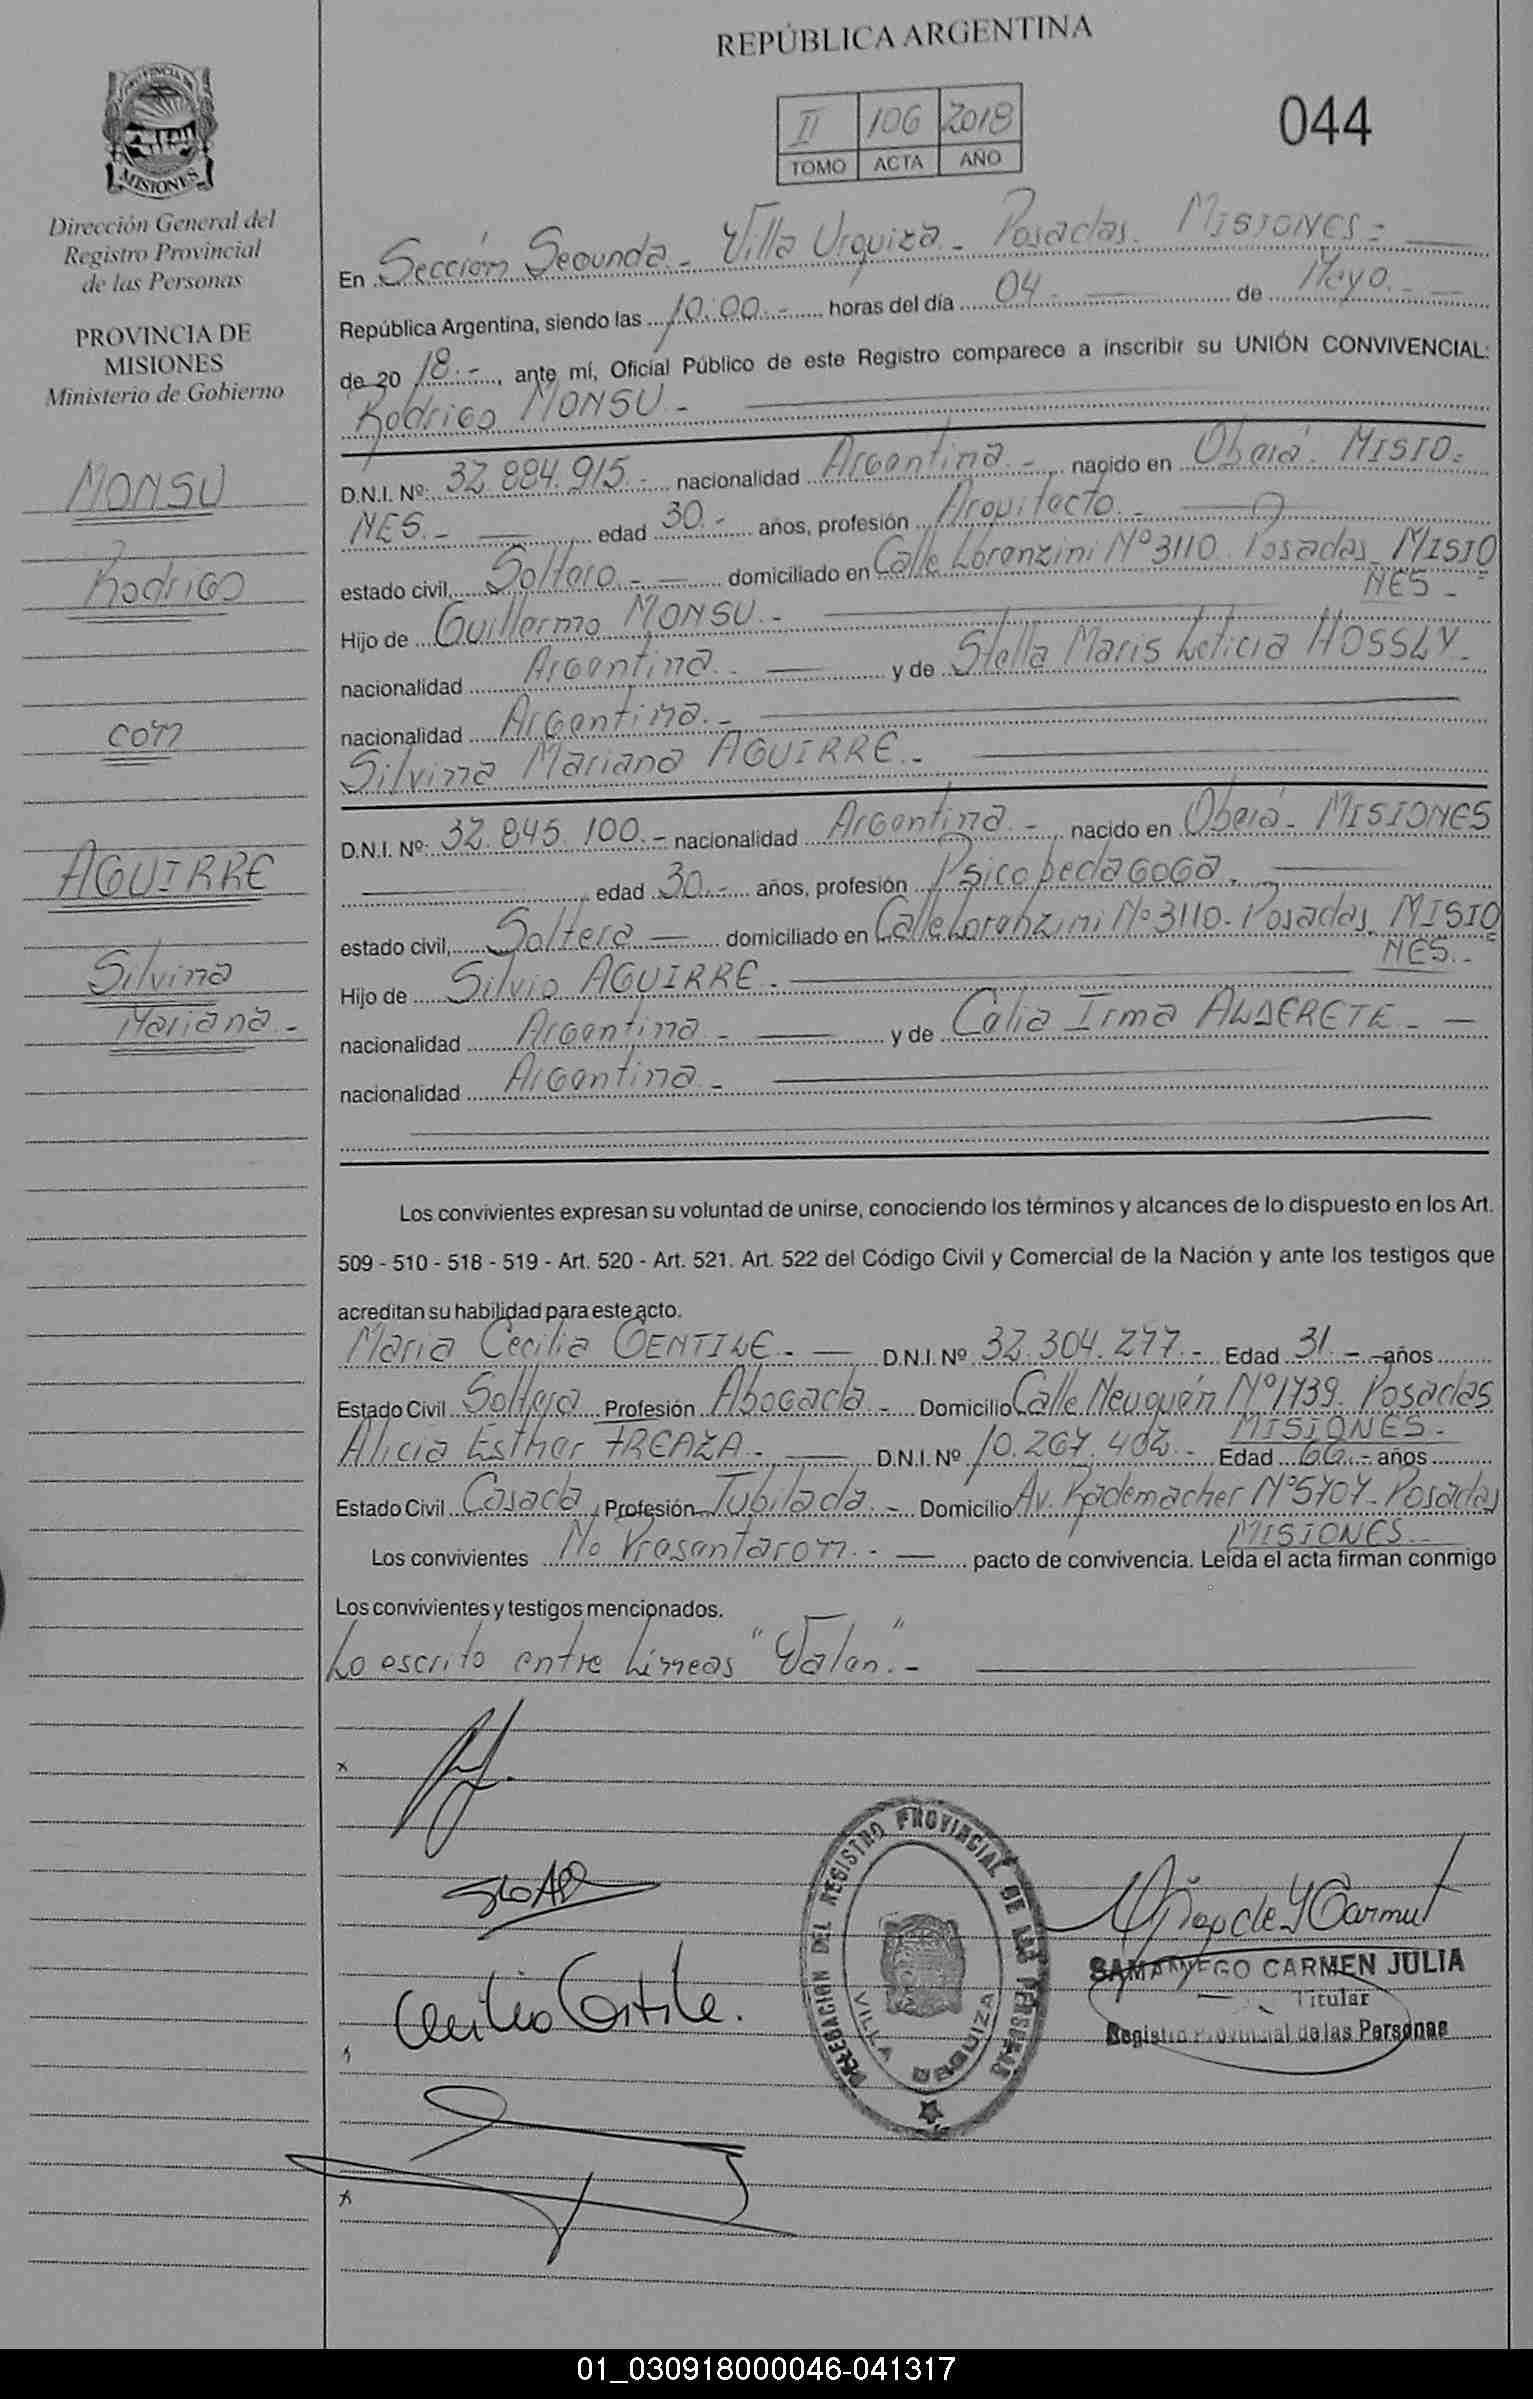 REPÚBLICA ARGENTINA
II 106 2018
TOMO ACTA AÑO
044
PROVINCIA DE
MISIONES
Dirección General del
Registro Provincial
de las Personas
PROVINCIA DE
MISIONES
Ministerio de Gobierno
MONSU
Rodrigo
con
AGUIRRE
Silvina
Mariana.-
En Sección Segunda - Villa Urquiza - Posadas. MISIONES -
República Argentina, siendo las 10:00.- horas del día 04.- de Mayo.-
de 20 18.-, ante mí, Oficial Público de este Registro comparece a inscribir su UNIÓN CONVIVENCIAL:
Rodrigo MONSU.-
D.N.I. Nº: 32.884.915.- nacionalidad Argentina.-, nacido en Oberá. MISIO-
NES.- edad 30.- años, profesión Arquitecto.-
estado civil, Soltero.- domiciliado en Calle Lorenzini Nº 3110. Posadas. MISIO
NES.-
Hijo de Guillermo MONSU.-
nacionalidad Argentina.- y de Stella Maris Leticia HOSSLY.
nacionalidad Argentina.-
Silvina Mariana AGUIRRE.-
D.N.I. Nº: 32.845.100.- nacionalidad Argentina.-, nacido en Oberá - MISIONES
, edad 30.- años, profesión Psicopedagoga.
estado civil, Soltera domiciliado en Calle Lorenzini Nº 3110 - Posadas, MISIO
NES.-
Hijo de Silvio AGUIRRE.
nacionalidad Argentina - y de Celia Irma ALDERETE.-
nacionalidad Argentina -
Los convivientes expresan su voluntad de unirse, conociendo los términos y alcances de lo dispuesto en los Art.
509 - 510 - 518 - 519 - Art. 520 - Art. 521. Art. 522 del Código Civil y Comercial de la Nación y ante los testigos que
acreditan su habilidad para este acto.
Maria Cecilia GENTILE.- D.N.I. Nº 32.304.277.- Edad 31.- años
Estado Civil Soltera Profesión Abogada.- Domicilio Calle Neuquén Nº 1739. Posadas
MISIONES.-
Alicia Esther FREAZA.- D.N.I. Nº 10.267.402.- Edad 66.- años
Estado Civil Casada, Profesión Jubilada.- Domicilio Av. Rademacher Nº 5707 - Posadas
MISIONES.-
Los convivientes No Presentaron.- pacto de convivencia. Leída el acta firman conmigo
Los convivientes y testigos mencionados.
Lo escrito entre Líneas "Valen".-
DELEGACION DEL REGISTRO PROVINCIAL DE LAS PERSONAS
VILLA URQUIZA
SAMANIEGO CARMEN JULIA
Titular
Registro Provincial de las Personas
01_030918000046-041317